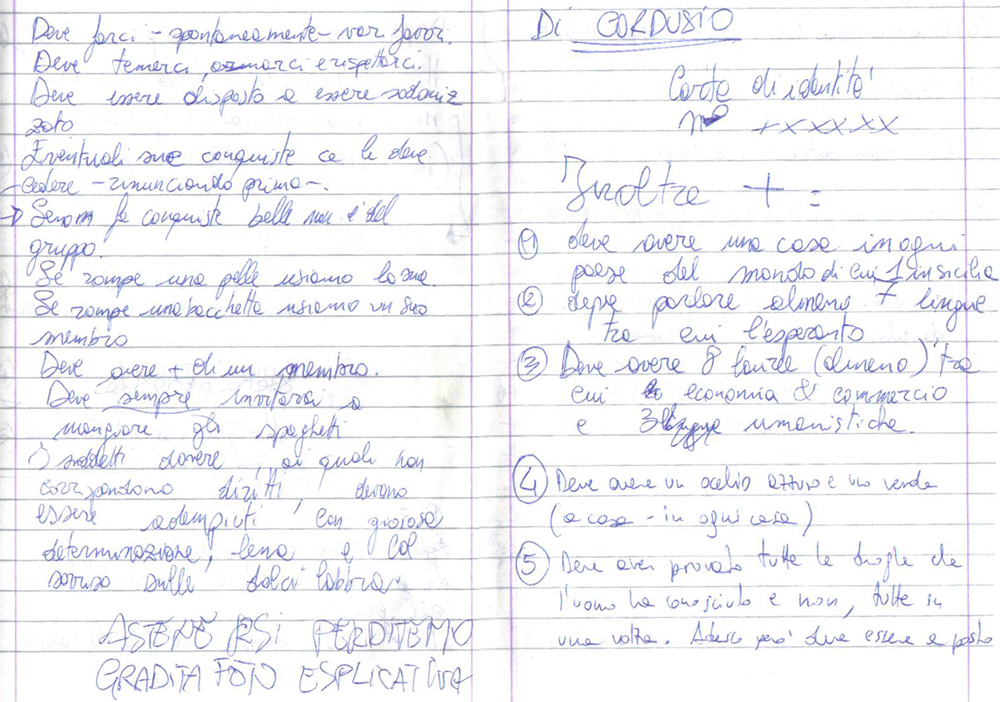 Deve farci - spontaneamente - vari favori.
Deve temerci, osmarci e rispettarci.
Deve essere disposto a essere sodomiz
zato
Eventuali sue conquiste ce le deve
cedere - rinunciando prima -.
→ Se non fa conquiste belle non è del
gruppo.
Se rompe una pelle usiamo la sua.
Se rompe una bacchetta usiamo un suo
membro
Deve avere + di un membro.
Deve sempre invitarci a
mangiare gli spaghetti
I suddetti dovere, ai quali non
corrispondono diritti, devono
essere adempiuti con gioiosa
determinazione, lena e col
sorriso sulle dolci labbra
ASTENERSI PERDITEMPO
GRADITA FOTO ESPLICATIVA
DI CORDUSIO
Carta di identità
n° +xxxxx
Inoltre + =
1 deve avere una casa in ogni
paese del mondo di cui 1 in sicilia
2 deve parlare almeno 7 lingue
tra cui l'esperanto
3 Deve avere 8 lauree (almeno) tra
cui economia & commercio
e 3 umanistiche.
4 Deve avere un occhio azzurro e uno verde
(a casa - in ogni casa)
5 Deve aver provato tutte le droghe che
l'uomo ha conosciuto e non, tutte in
una volta. Adesso però deve essere a posto